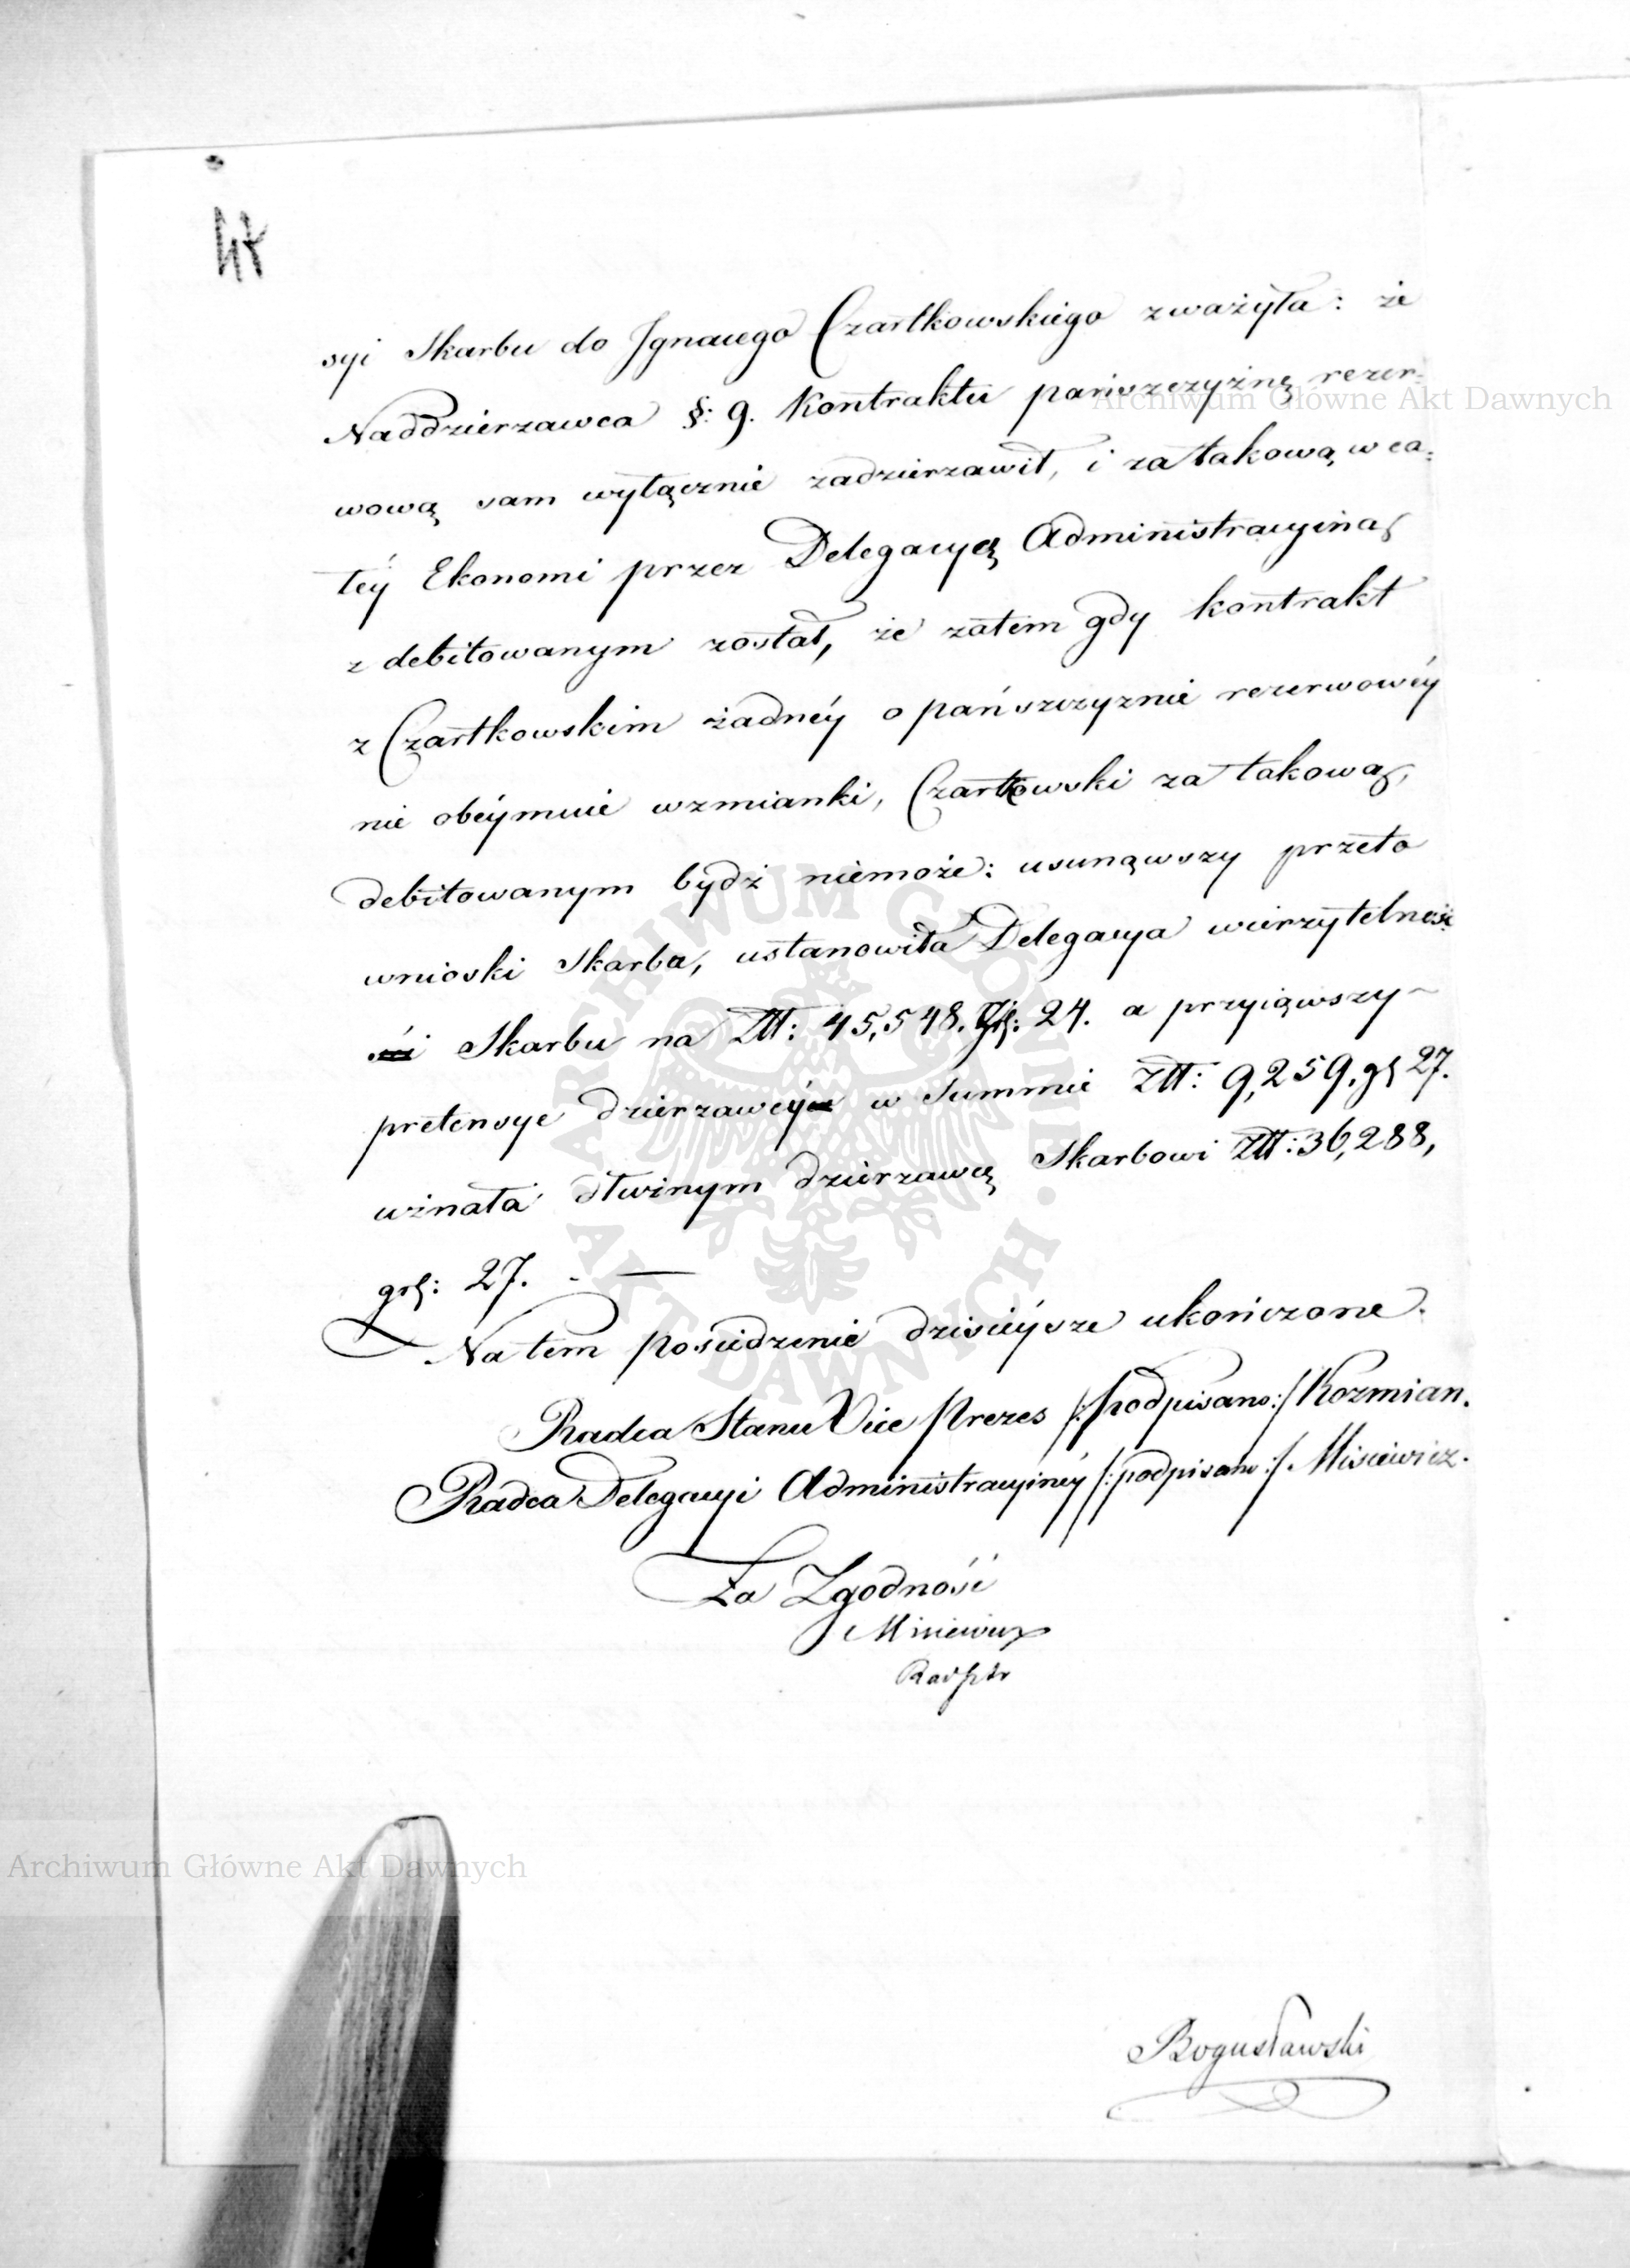 44
syi Skarbu do Ignacego Czartkowskiego zważyła: że
Naddzierzawca §: 9. Kontraktu pańszczyznę rezer-
wową sam wyłącznie zadzierzawił, i za takową w ca-
łéy Ekonomi przez Delegacyą Administracyina
z debitowanym został, że zatem gdy kontrakt
z Czartkowskim żadnéy o pańszczyznie rezerwowéy
nie obéymuie wzmianki, Czartkowski za takową,
debitowanym bydź niemoże: usunąwszy przeto
wnioski Skarbu, ustanowiła Delegacya wierzytelność
Skarbu na Złł: 45,548. gr: 24. a przyiąwszy
pretensye dzierzawcy w Summie Złł: 9,259. gr 27.
uznała dłużnym dzierzawcę Skarbowi Złł: 36,288,
gr: 27. - —
Na tem posiedzenie dzisieysze ukończone.
Radca Stanu Vice Prezes /:podpisano:/ Kozmian.
Radca Delegacyi Administracyinéy /:podpisano:/ Misiewicz.
Za Zgodność
Misiewicz
Bogusławski
Archiwum Główne Akt Dawnych
ARCHIWUM GŁÓWNE AKT DAWNYCH
Archiwum Główne Akt Dawnych